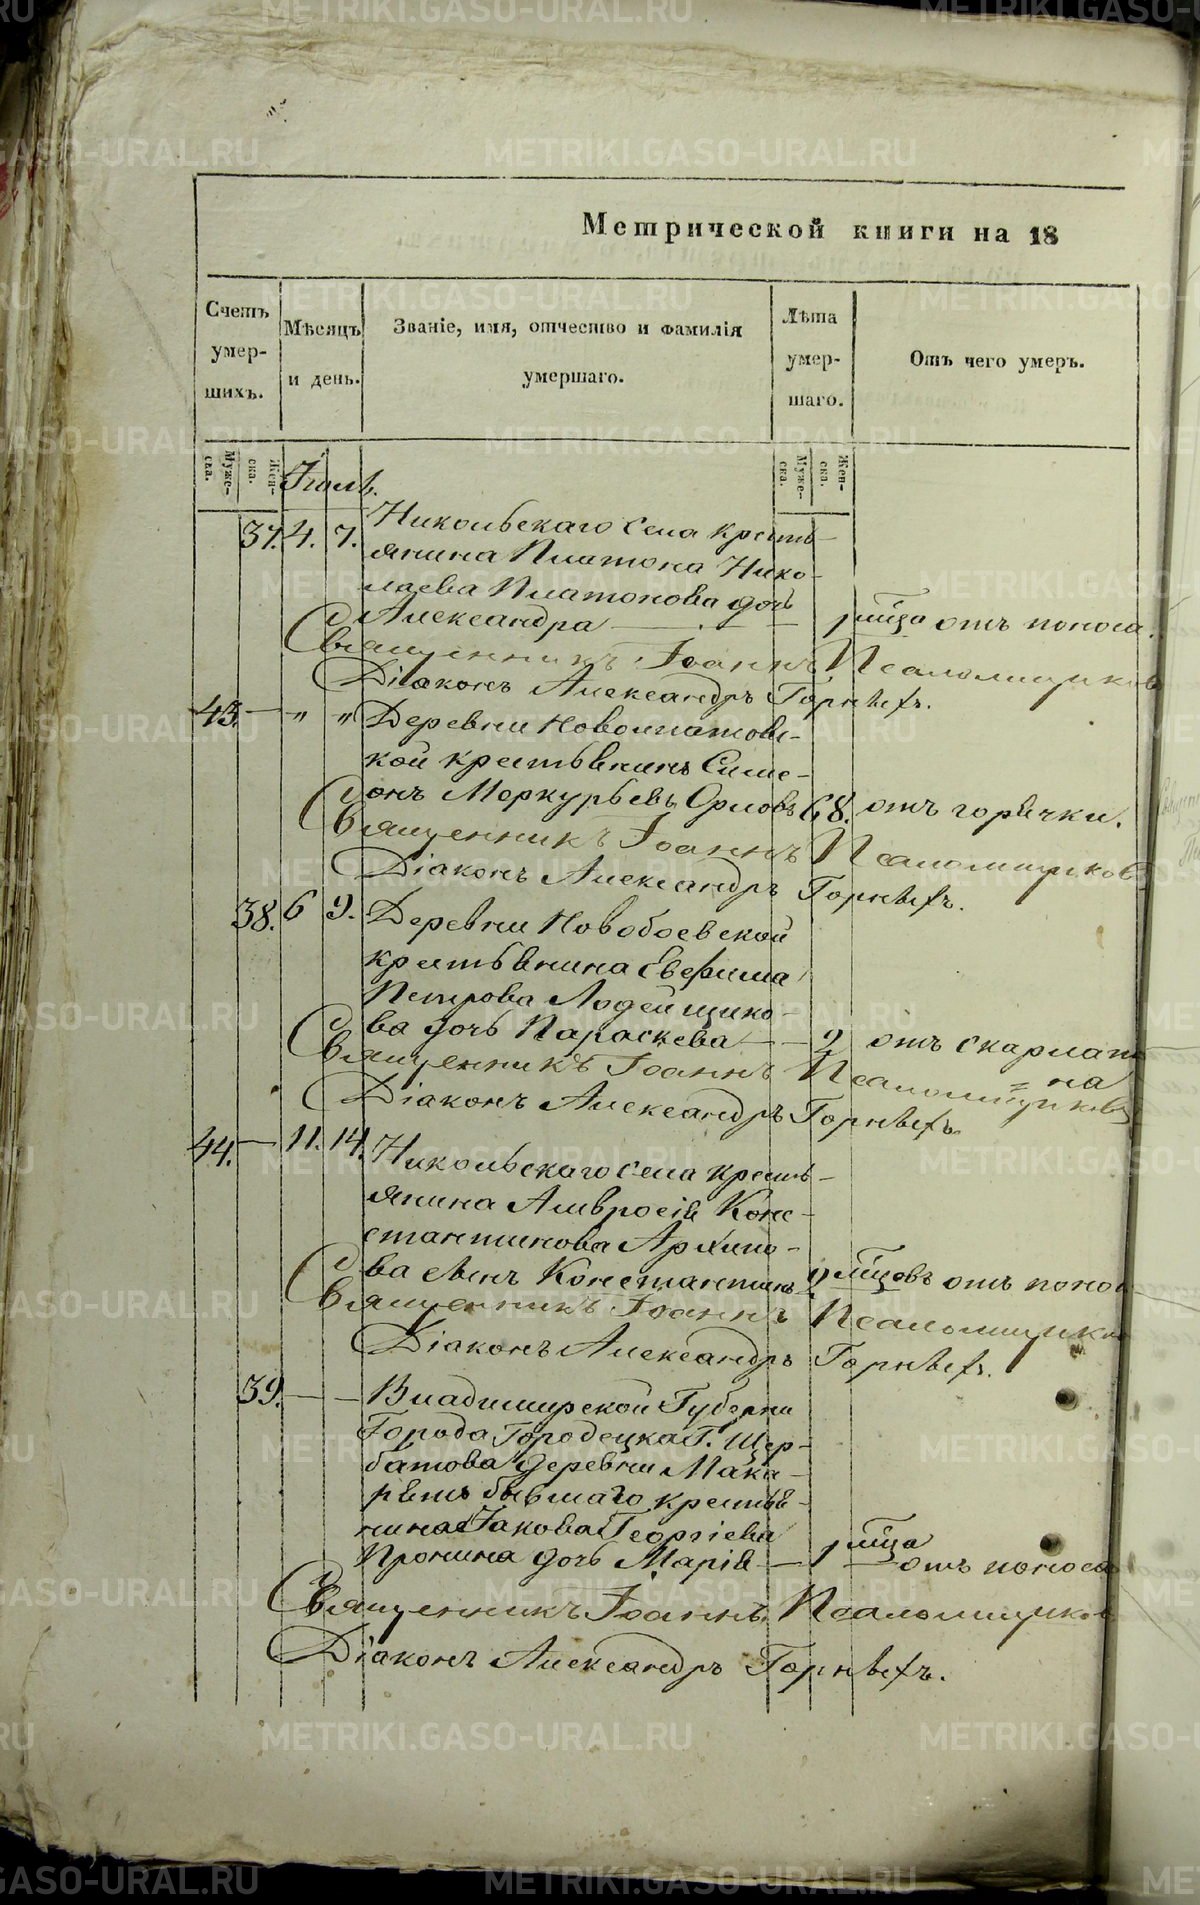 Метрической книги на 18
Счетъ умер-шихъ.
Мѣсяцъ и день.
Званіе, имя, отчество и фамилія умершаго.
Лѣта умер-шаго.
Отъ чего умеръ.
Муже-ска.
Жен-ска.
Муже-ска.
Жен-ска.
Іюль.
37. 4. 7. Никольскаго села кресть-
янина Платона Нико-
лаева Платонова дочь
Александра — 1 мѣсца отъ поноса.
Священникъ Іоаннъ Псаломщиковъ
Діаконъ Александръ Горныхъ.
43. — " " Деревни Новоипатовс-
кой крестьянинъ Симе-
онъ Меркурьевъ Орловъ 68. отъ горячки.
Священникъ Іоаннъ Псаломщиковъ
Діаконъ Александръ Горныхъ.
38. 6 9. Деревни Новобоевской
крестьянина Евфима
Петрова Лодейщико-
ва дочь Параскева — 2 отъ скарлати
= на
Священникъ Іоаннъ Псаломщиковъ
Діаконъ Александръ Горныхъ.
44. — 11. 14. Никольскаго села кресть-
янина Амвросія Конс-
тантинова Архипо-
ва сынъ Константинъ 2 мѣсцовъ отъ поноса
Священникъ Іоаннъ Псаломщиков
Діаконъ Александръ Горныхъ.
39. — — Владимирской Губерни
Города Городецка Г. Щер-
батова деревни Мака-
рятъ бывшаго крестья-
нина Іакова Георгіева
Пронина дочь Марія — 1 мѣсца отъ поноса
Священникъ Іоаннъ Псаломщиков
Діаконъ Александръ Горныхъ.
METRIKI.GASO-URAL.RU